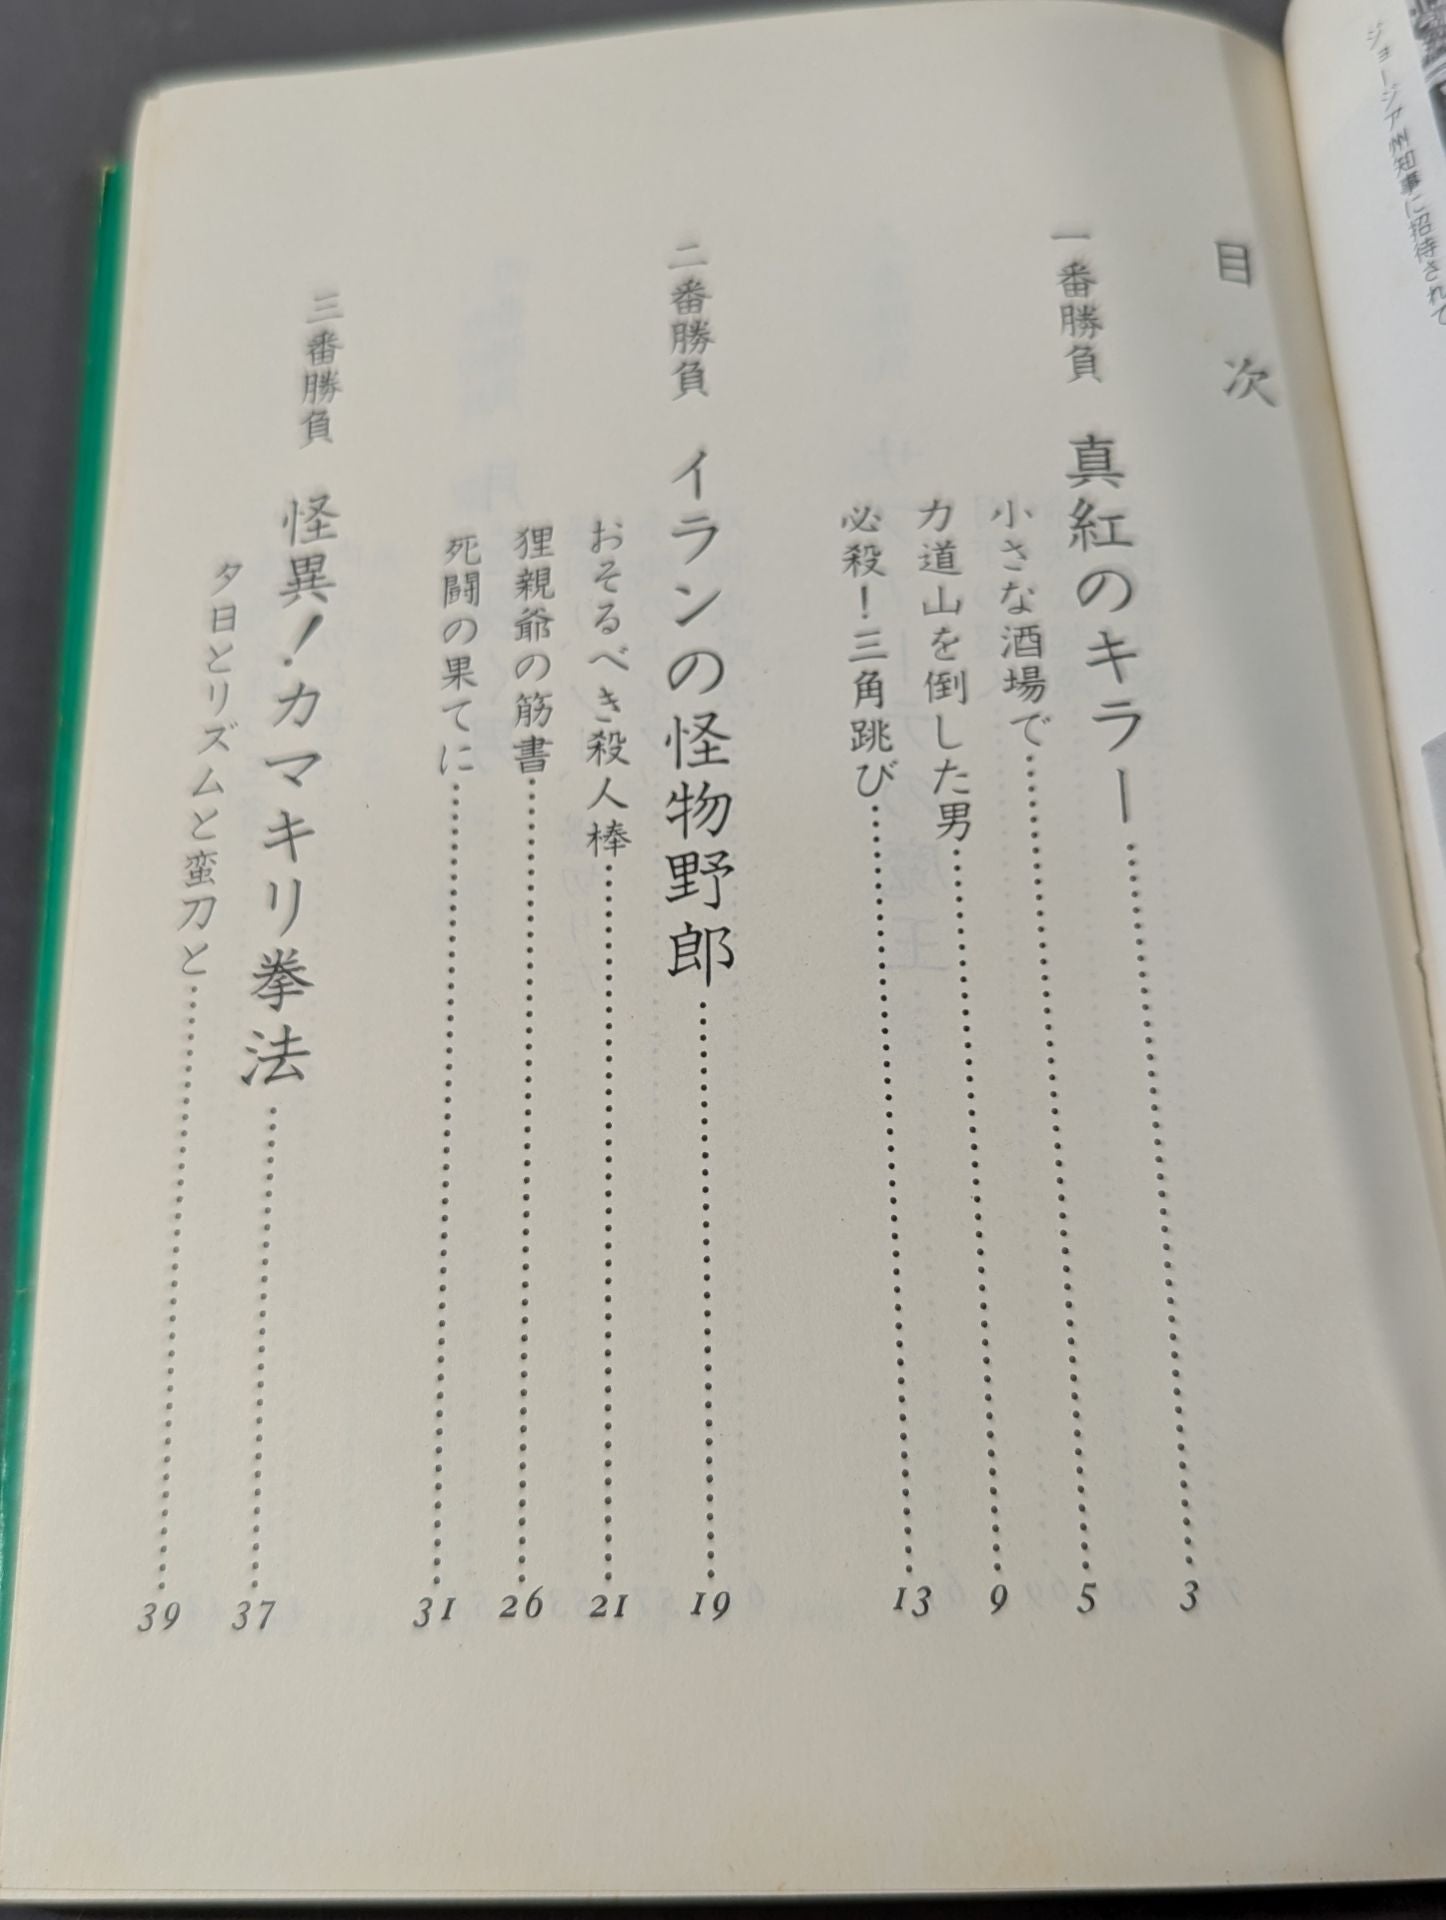 ジョージア州知事に招待されて
目次
一番勝負 真紅のキラー……3
小さな酒場で……5
力道山を倒した男……9
必殺！三角跳び……13
二番勝負 イランの怪物野郎……19
おそるべき殺人棒……21
狸親爺の筋書……26
死闘の果てに……31
三番勝負 怪異！カマキリ拳法……37
夕日とリズムと蛮刀と……39